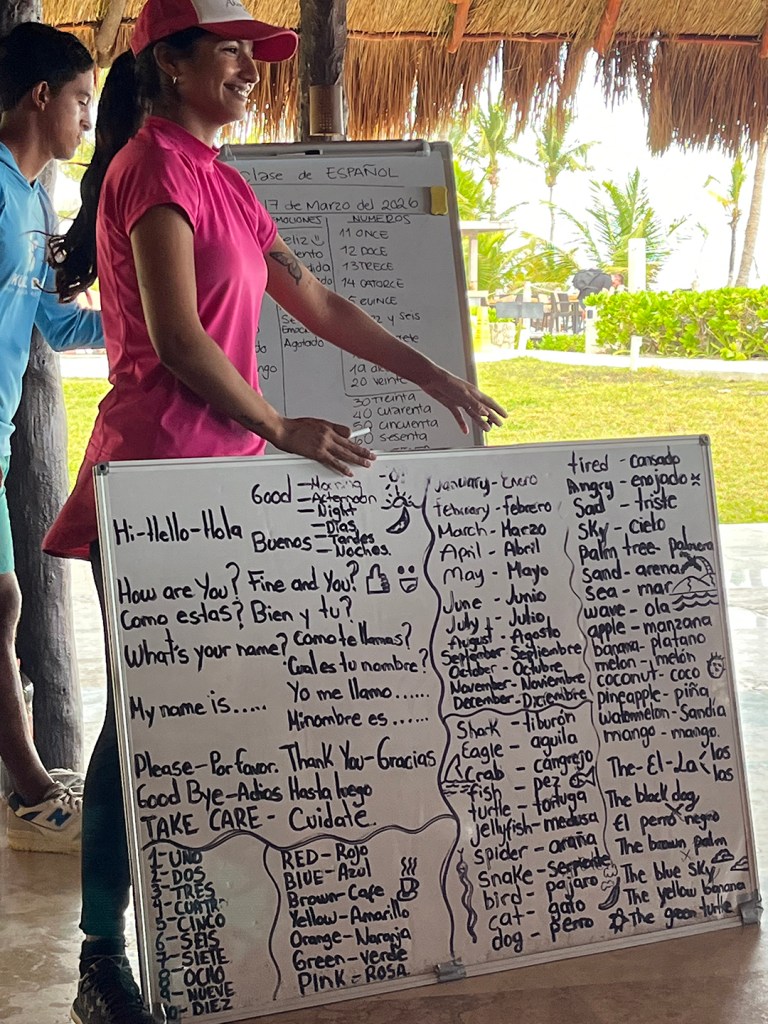 clase de ESPAÑOL
17 de Marzo del 2026
EMOCIONES
NUMEROS
11 ONCE
12 DOCE
13 TRECE
14 CATORCE
20 veinte
30 Treinta
40 cuarenta
50 cincuenta
60 sesenta
Agotado
Good - Morning
- Afternoon
- Night
Hi-Hello-Hola
Buenos - Días
- Tardes
- Noches.
How are You? Fine and You?
Como estas? Bien y tu?
What's your name? Como te llamas?
Cual es tu nombre?
My name is..... Yo me llamo ......
Mi nombre es ......
Please-Por favor. Thank You-Gracias
Good Bye-Adios Hasta luego
TAKE CARE - Cuidate.
1- UNO
2- DOS
3- TRES
4- CUATRO
5- CINCO
6- SEIS
7- SIETE
8- OCHO
9- NUEVE
10- DIEZ
RED- Rojo
BlUE- Azul
Brown- Cafe
Yellow- Amarillo
Orange- Naranja
Green- verde
PINK- ROSA.
January- Enero
February- febrero
March- Marzo
April - Abril
May - Mayo
June - Junio
July - Julio
August - Agosto
September- Septiembre
October- Octubre
November- Noviembre
December- Diciembre
Shark - tiburón
Eagle - aguila
Crab - cangrejo
fish - pez
turtle - tortuga
jellyfish- medusa
spider - araña
snake- Serpiente
bird - pajaro
cat - gato
dog - perro
tired - cansado
Angry - enojado
Sad - triste
Sky - cielo
Palm tree- palmera
Sand- arena
Sea - mar
wave - ola
apple - manzana
banana- platano
melon - melón
coconut- coco
pineapple - piña
watermelon- Sandia
mango - mango.
The- El - La los
las
The black dog
El perro negro
The brown palm
The blue sky
The yellow banana
The green turtle